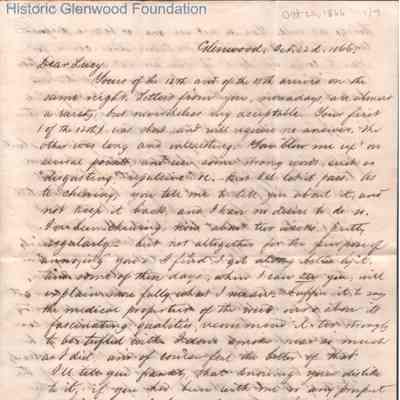 Historic Glenwood Foundation
Glenwood, Oct. 22d, 1866.
Dear Lucy
Yours of the 12th and of the 17th arrive on the
same night. Letters from you, nowadays, are almost
a rarity, but nonetheless very acceptable. Your first
(of the 12th) was short and will require no answer. The
other was long and interesting. You blow me up on
several points and use some strong words, such as
"disgusting" "repulsive" &c. but I'll let it pass. As
to chewing, you tell me to tell you about it, and
not keep it back, and I have no desire to do so.
I've been chewing, now about two weeks, pretty
regularly - but not altogether for the purpose of
annoying you. I find I get along better by it.
some of these days, when I can see you, will
explain more fully what I mean. Suffice it to say
the medical properties of the weed more than its
fascinating qualities,
to be trifled with. I don't smoke near so much
as I did, and of course feel the better of that.
I'll tell you frankly, that knowing your dislike
to it, if you had been with me or any prospect